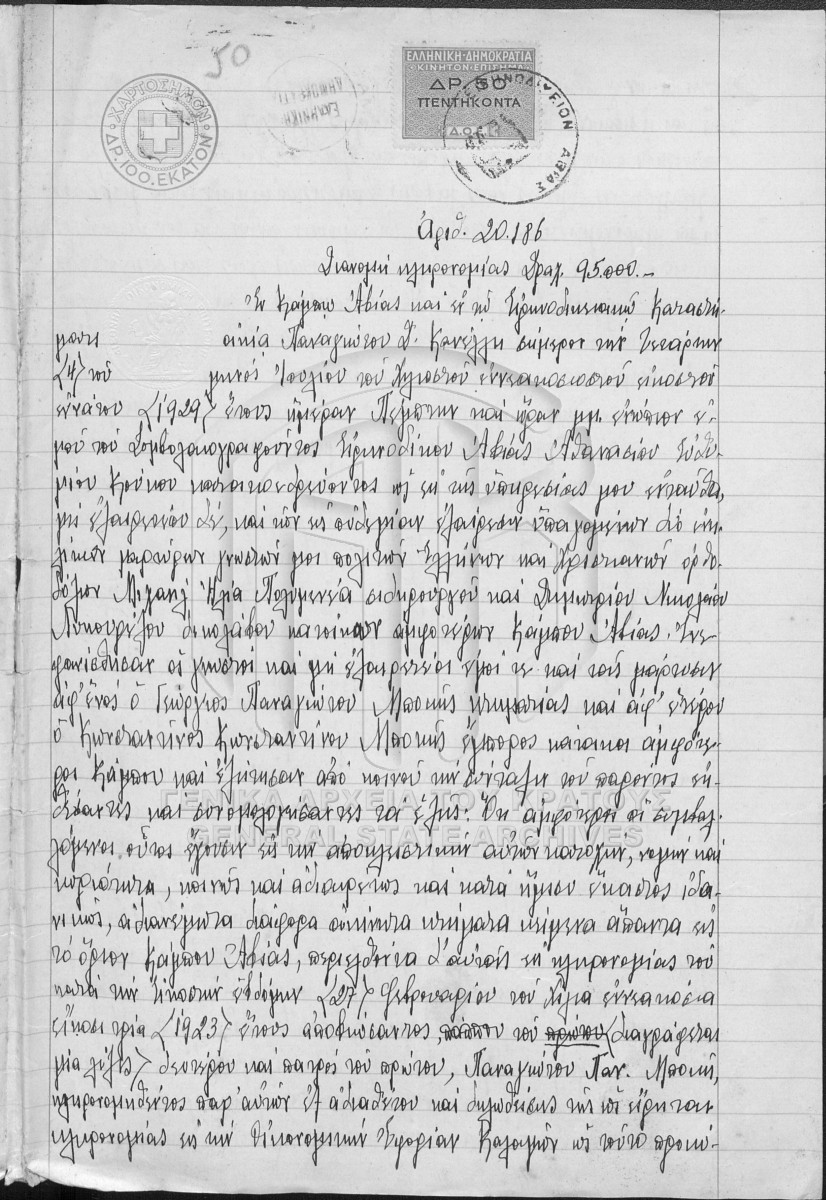 50
ΧΑΡΤΟΣΗΜΟΝ
ΔΡ. 100. ΕΚΑΤΟΝ
ΕΛΛΗΝΙΚΗ ΔΗΜΟΚΡΑΤΙΑ
ΚΙΝΗΤΟΝ ΕΠΙΣΗΜΑ
ΔΡ. 50
ΠΕΝΤΗΚΟΝΤΑ
Ἀριθ. 20.186
Διανομὴ κληρονομίας Δραχ. 95.000.-
Ἐν Κάμπῳ Ἀβίας καὶ ἐν τῷ Εἰρηνοδικειακῷ Καταστή-
ματι οἰκίᾳ Παναγιώτου Δ. Κανέλλη σήμερον τὴν τετάρτην
(4) τοῦ μηνὸς Ἰουλίου τοῦ χιλιοστοῦ ἐννεακοσιοστοῦ εἰκοστοῦ
ἐνάτου (1929) ἔτους ἡμέραν Πέμπτην καὶ ὥραν μμ. ἐνώπιον ἐ-
μοῦ τοῦ Συμβολαιογραφοῦντος Εἰρηνοδίκου Ἀβίας Ἀθανασίου Εὐθυ-
μίου Κρόκου κατοικοεδρεύοντος ὡς ἐκ τῆς ὑπηρεσίας μου ἐνταῦθα,
μὴ ἐξαιρετέου δέ, καὶ τῶν εἰς οὐδεμίαν ἐξαίρεσιν ὑπαγομένων δύο ἐνη-
λίκων μαρτύρων γνωστῶν μοι πολιτῶν Ἑλλήνων καὶ Χριστιανῶν ὀρθο-
δόξων Μιχαὴλ Ἠλία Πολυμενέα σιδηρουργοῦ καὶ Δημητρίου Νικολάου
ἐργολάβου κατοίκων ἀμφοτέρων Κάμπου Ἀβίας. Ἐνε-
φανίσθησαν οἱ γνωστοὶ καὶ μὴ ἐξαιρετέοι ἐμοί τε καὶ τοῖς μάρτυσιν
ἀφ' ἑνὸς ὁ Γεώργιος Παναγιώτου Μπσκῆς κτηματίας καὶ ἀφ' ἑτέρου
ὁ Κωνσταντῖνος Κωνσταντίνου ἔμπορος κάτοικοι ἀμφότε-
ροι Κάμπου καὶ ἐζήτησαν ἀπὸ κοινοῦ τὴν σύνταξιν τοῦ παρόντος ἐκ-
θέσαντες καὶ συνομολογήσαντες τὰ ἑξῆς: Ὅτι ἀμφότεροι οἱ συμβαλ-
λόμενοι οὗτοι ἔχουσιν εἰς τὴν ἀποκλειστικὴν αὐτῶν κατοχήν, νομὴν καὶ
κυριότητα, κοινῶς καὶ ἀδιαιρέτως καὶ κατὰ ἥμισυ ἕκαστος ἰδα-
νικῶς, ἀδιανέμητα διάφορα ἀκίνητα κτήματα κείμενα ἅπαντα εἰς
τὸ ὅριον Κάμπου Ἀβίας, περιελθόντα δ' αὐτοῖς ἐκ κληρονομίας τοῦ
κατὰ τὴν Εἰκοστὴν ἑβδόμην (27) Φεβρουαρίου τοῦ χίλια ἐννεακόσια
εἴκοσι τρία (1923) ἔτους ἀποβιώσαντος πάππου τοῦ πρώτου (διαγράφεται
μία λέξις) δευτέρου καὶ πατρὸς τοῦ πρώτου, Παναγιώτου Παν.
κληρονομηθέντος παρ' αὐτῶν ἐξ ἀδιαθέτου καὶ δηλωθείσης τῆς ὡς εἴρηται
κληρονομίας εἰς τὴν Οἰκονομικὴν Ἐφορίαν Καλαμῶν ὡς τοῦτο προκύ-
ΓΕΝΙΚΑ ΑΡΧΕΙΑ ΤΟΥ ΚΡΑΤΟΥΣ
GENERAL STATE ARCHIVES